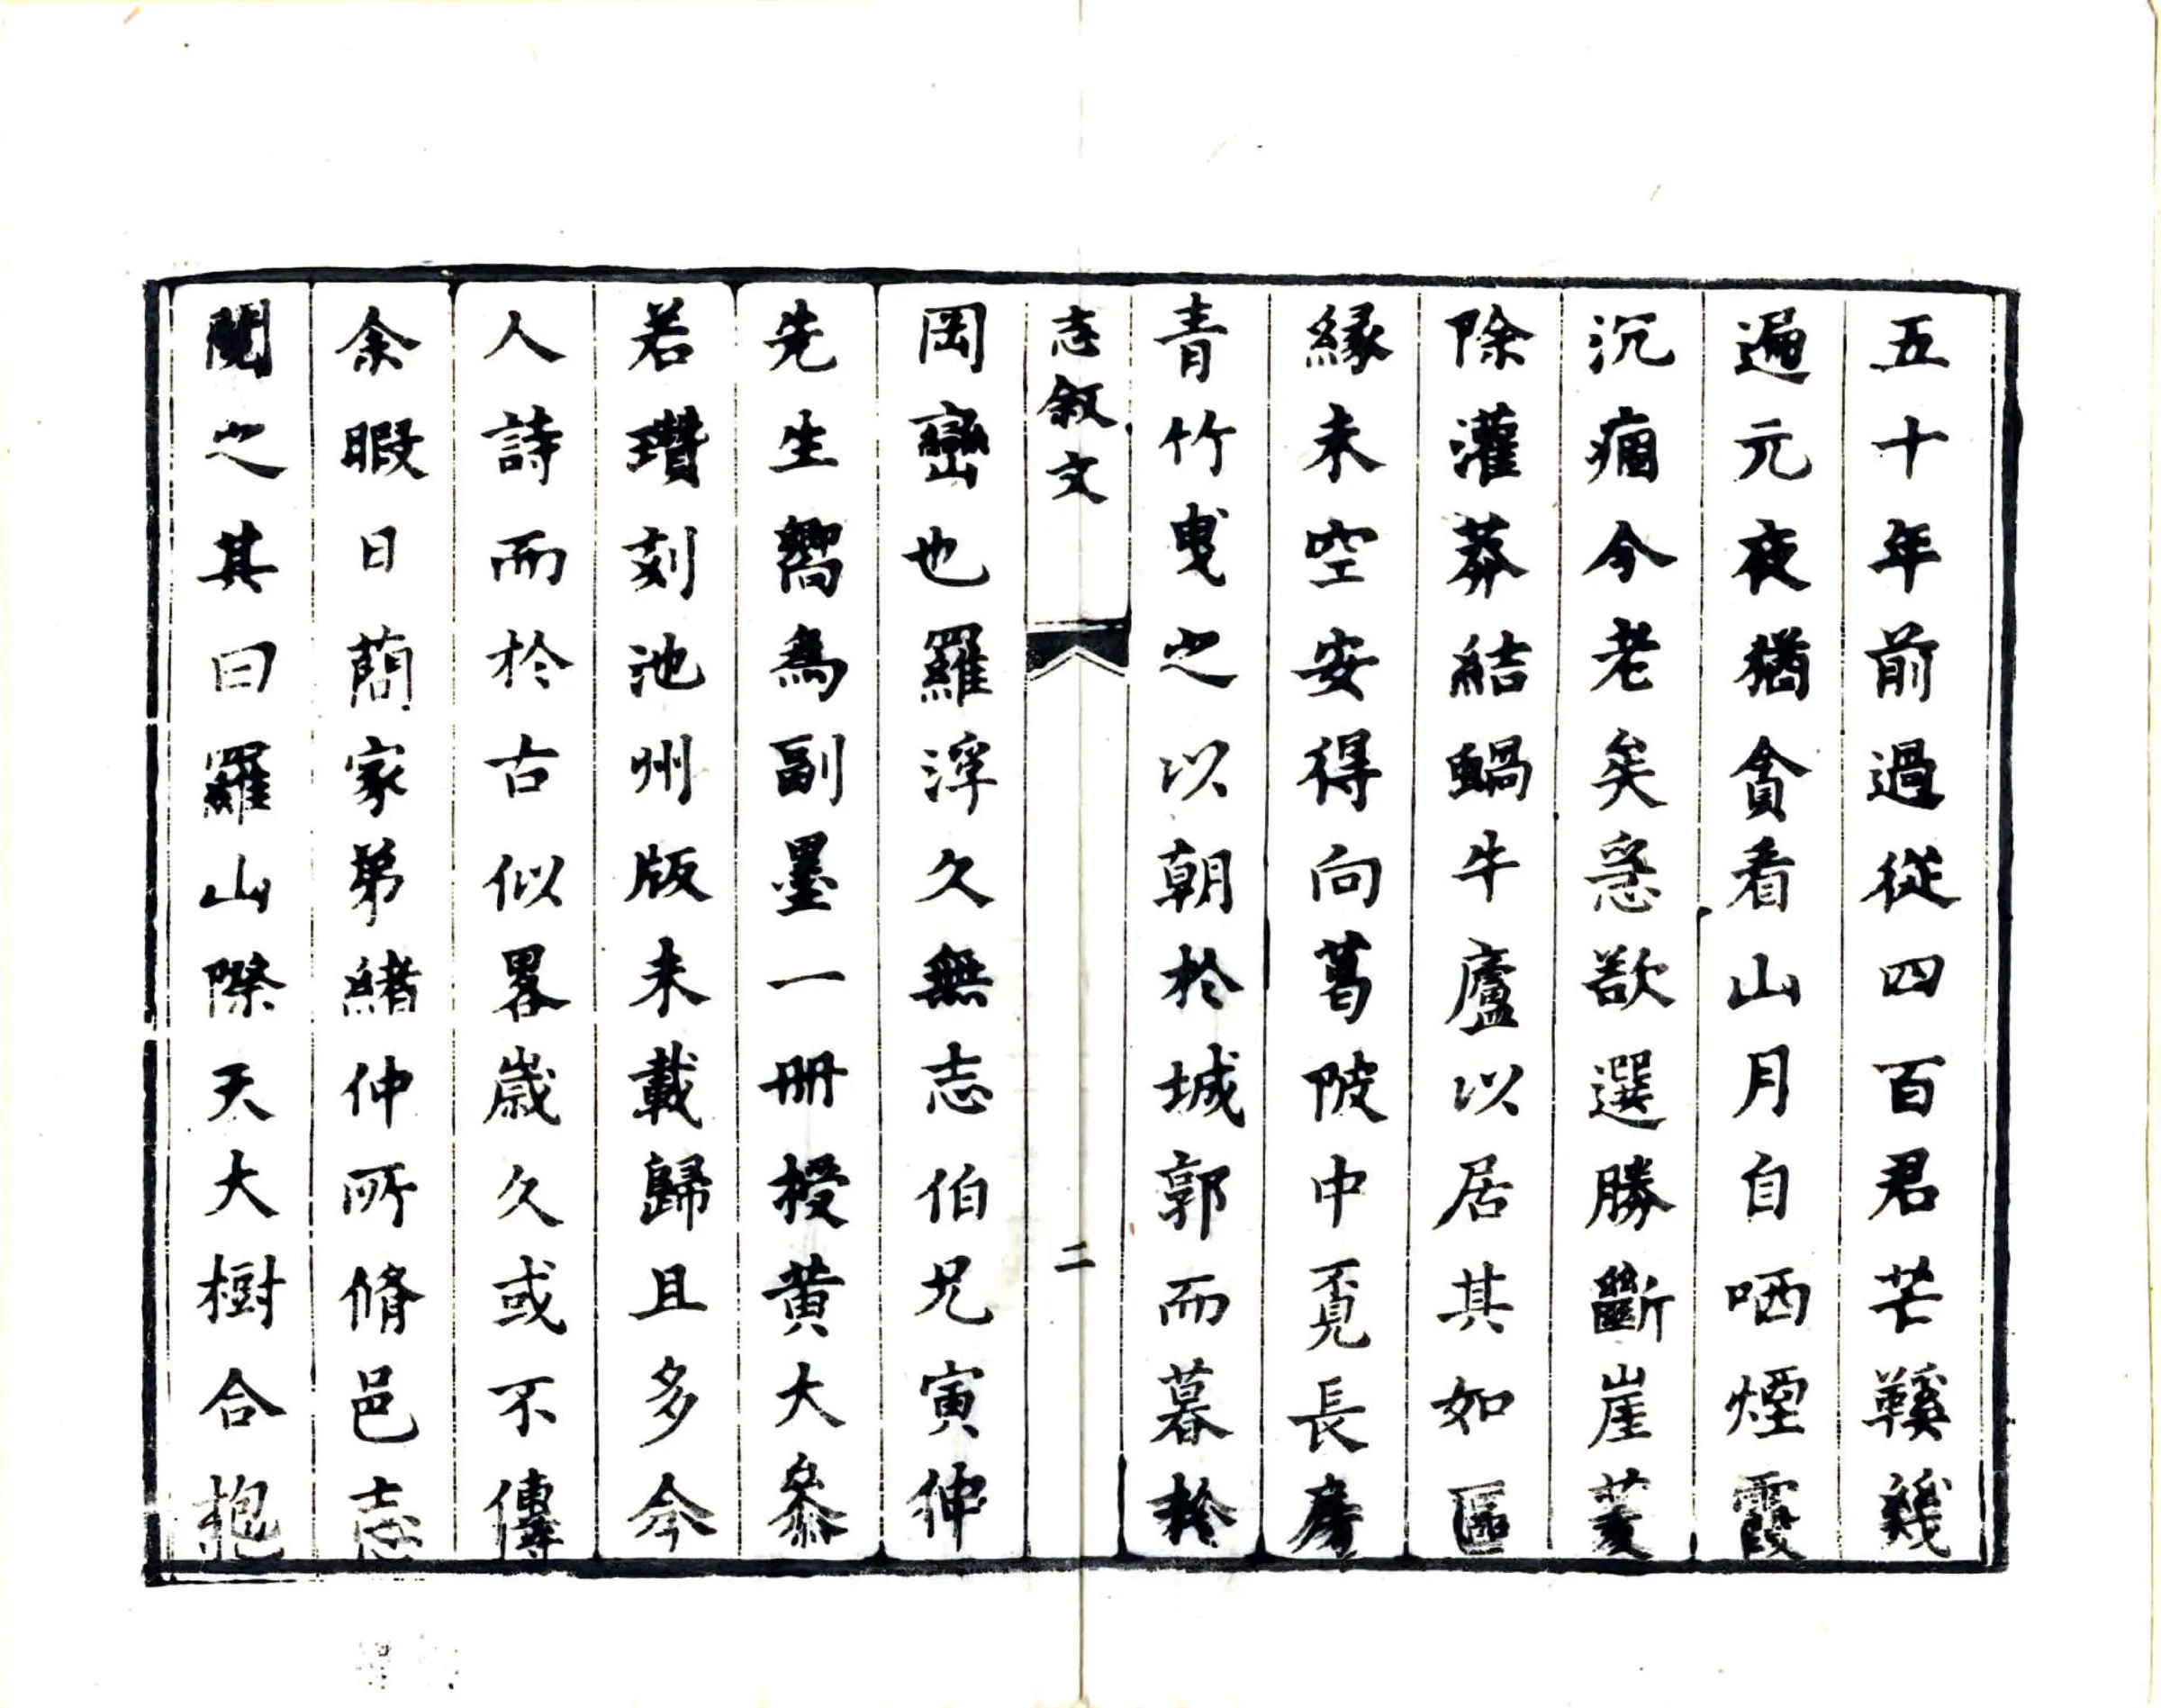 五十年前過從四百君芒鞵幾
遍元夜猶貪看山月自哂煙霞
沉痼今老矣急欲選勝斷崖菱
除灌莽結蝸牛廬以居其如區
緣未空安得向葛陂中覓長房
青竹曳之以朝於城郭而暮於
志敘文
二
岡巒也羅浮久無志伯兄寅仲
先生嚮為副墨一冊授黃大參
若瓚刻池州版未載歸且多今
人詩而於古似畧歲久或不傳
余暇日蕑家弟緒仲所脩邑志
閱之其曰羅山際天大樹合抱